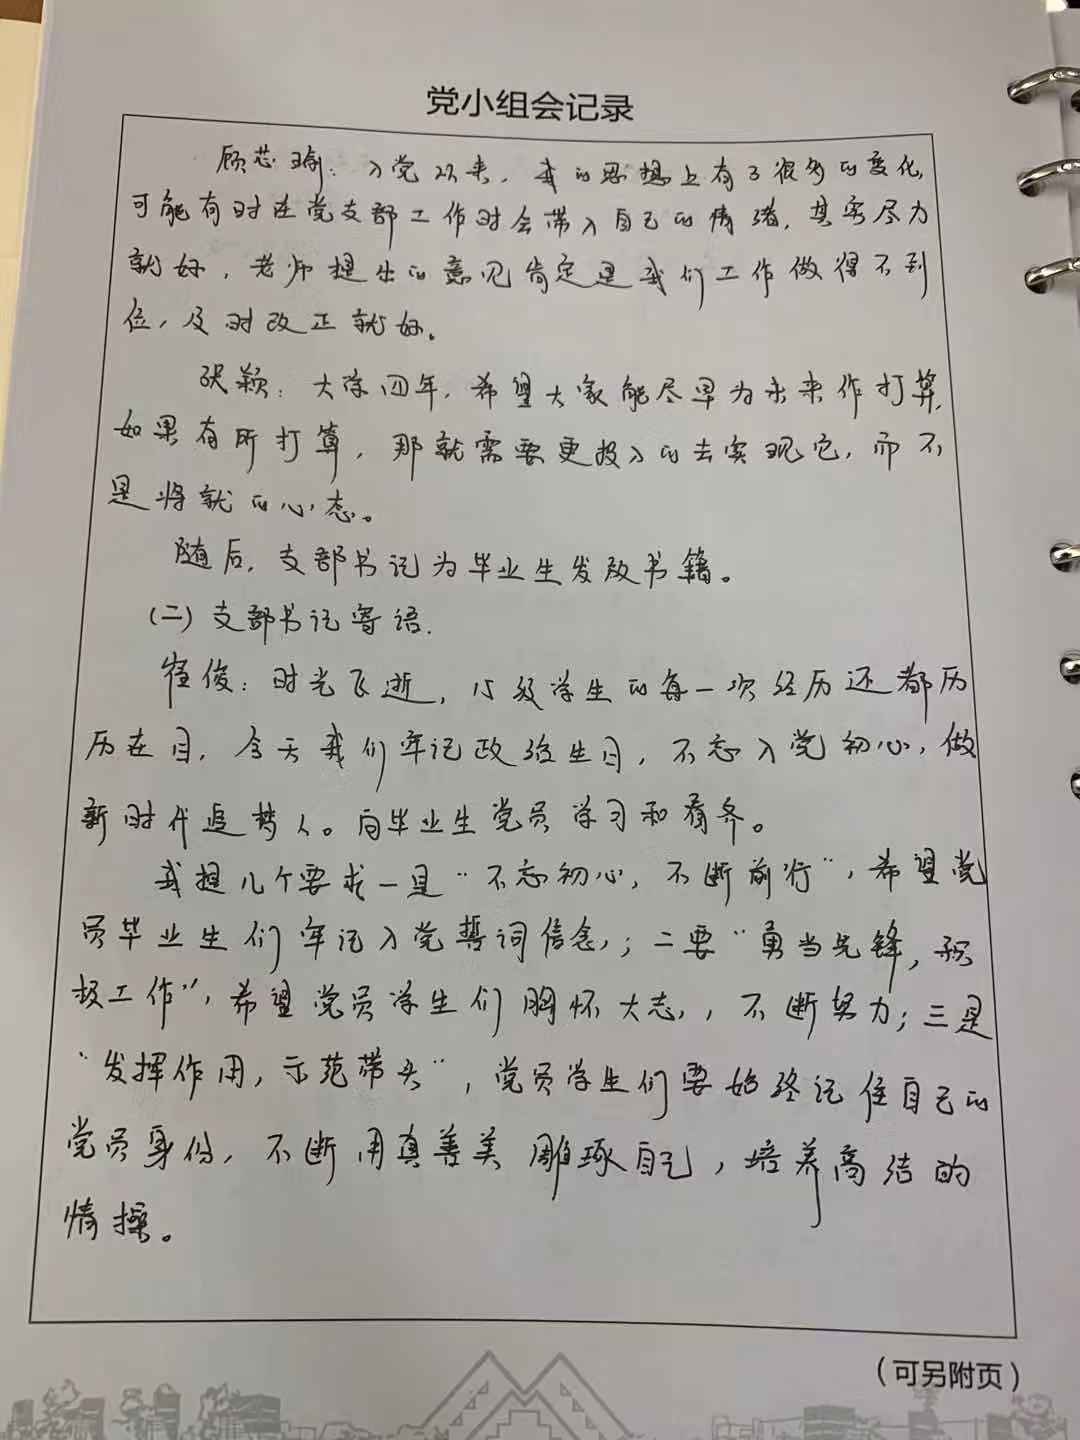 党小组会记录
顾芯瑜：入党以来，我的思想上有了很多的变化，
可能有时在党支部工作时会带入自己的情绪，其实尽力
就好，老师提出的意见肯定是我们工作做得不到
位，及时改正就好。
张颖：大学四年，希望大家能尽早为未来作打算，
如果有所打算，那就需要更投入的去实现它，而不
是将就的心态。
随后，支部书记为毕业生发放书籍。
（二）支部书记寄语．
崔俊：时光飞逝，15级学生的每一次经历还都历
历在目，今天我们牢记政治生日，不忘入党初心，做
新时代追梦人。向毕业生党员学习和看齐。
我提几个要求一是“不忘初心，不断前行”，希望党
员毕业生们牢记入党誓词信念，；二要“勇当先锋，积
极工作”，希望党员学生们胸怀大志，，不断努力；三是
“发挥作用，示范带头”，党员学生们要始终记住自己的
党员身份，不断用真善美雕琢自己，培养高洁的
情操。
（可另附页）